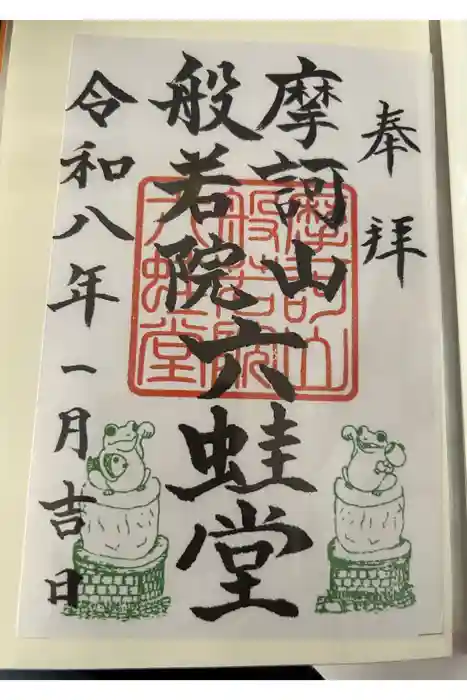 奉拝
摩訶山
般若院六蛙堂
令和八年一月吉日
摩訶山
般若院
六蛙堂